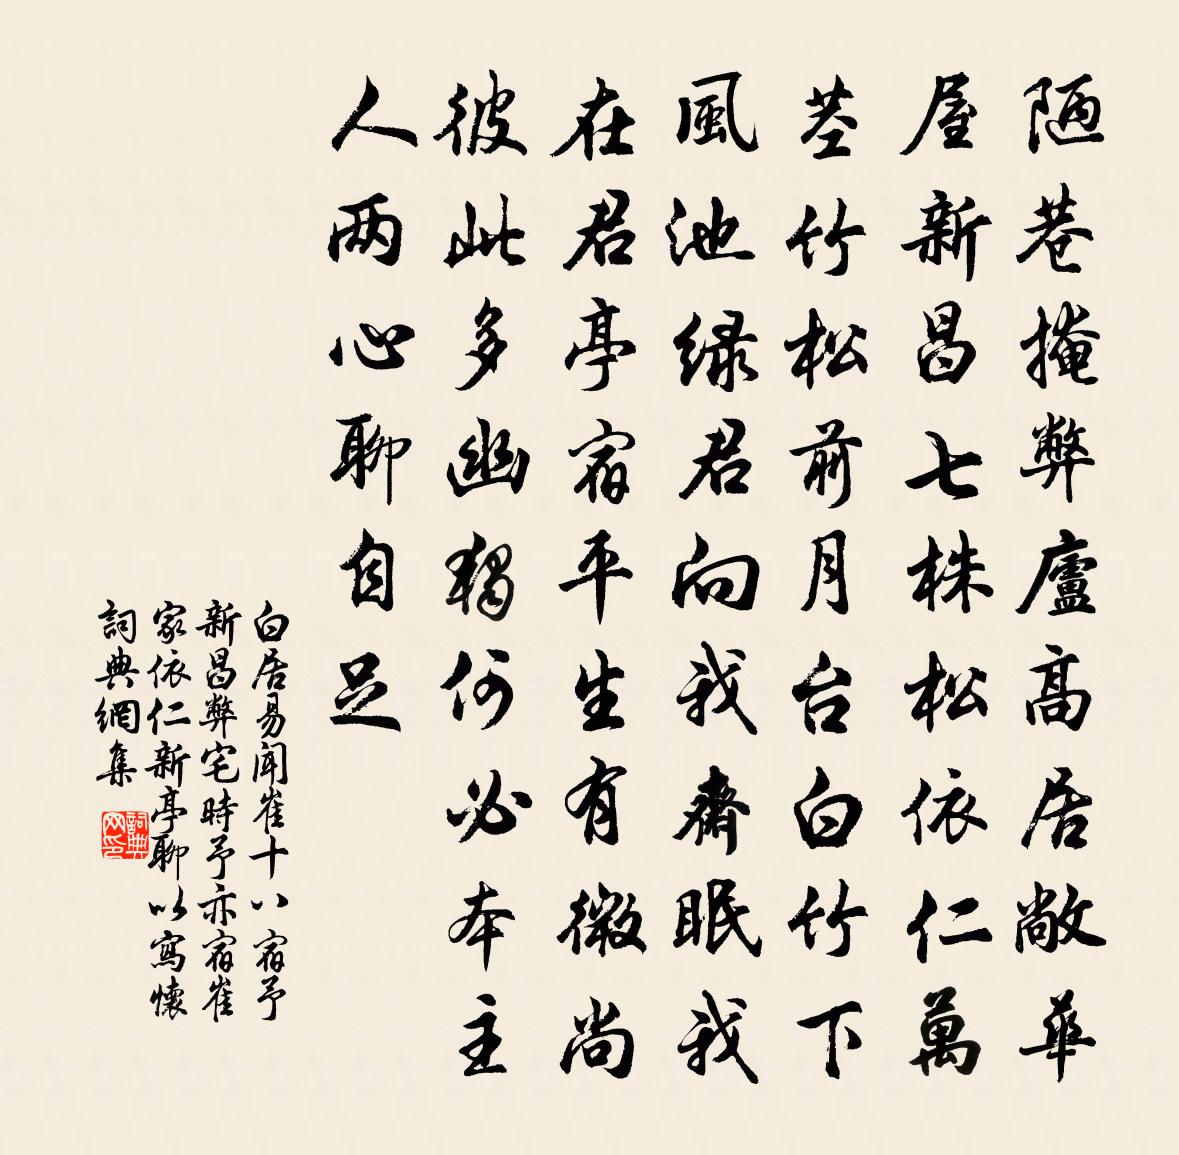 陋巷掩弊廬高居敞華
屋新昌七株松依仁萬
茎竹松前月台白竹下
風池绿君向我齋眠我
在君亭宿平生有微尚
彼此多幽獨何必本主
人两心聊自足
白居易聞崔十八宿予
新昌弊宅時予亦宿崔
家依仁新亭聊以寫懷
詞典網集
詞典
网印